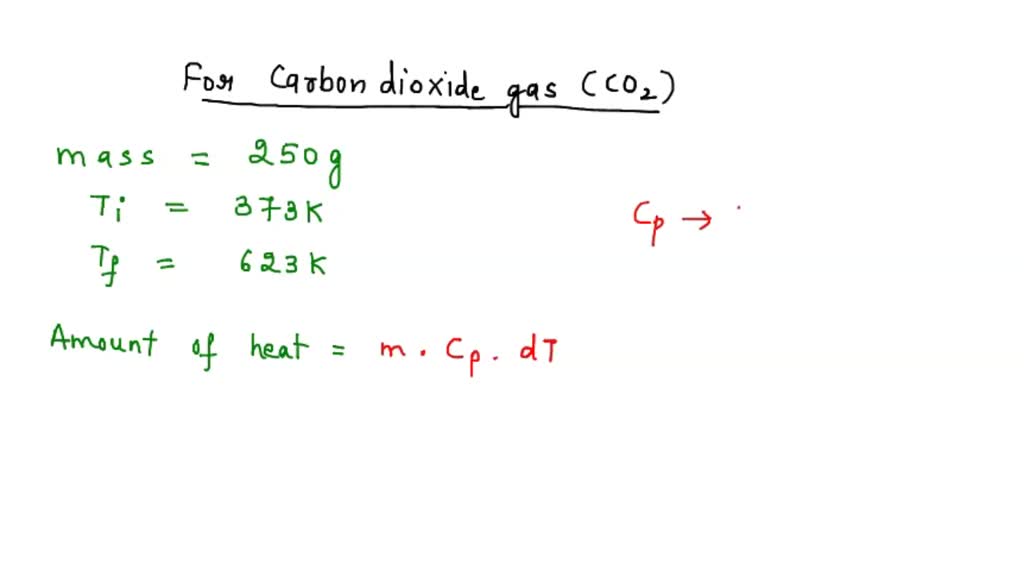 For Carbon dioxide gas (CO2)
mass = 250g
Ti = 373K
Cp →
Tf = 623K
Amount of heat = m . Cp . dT